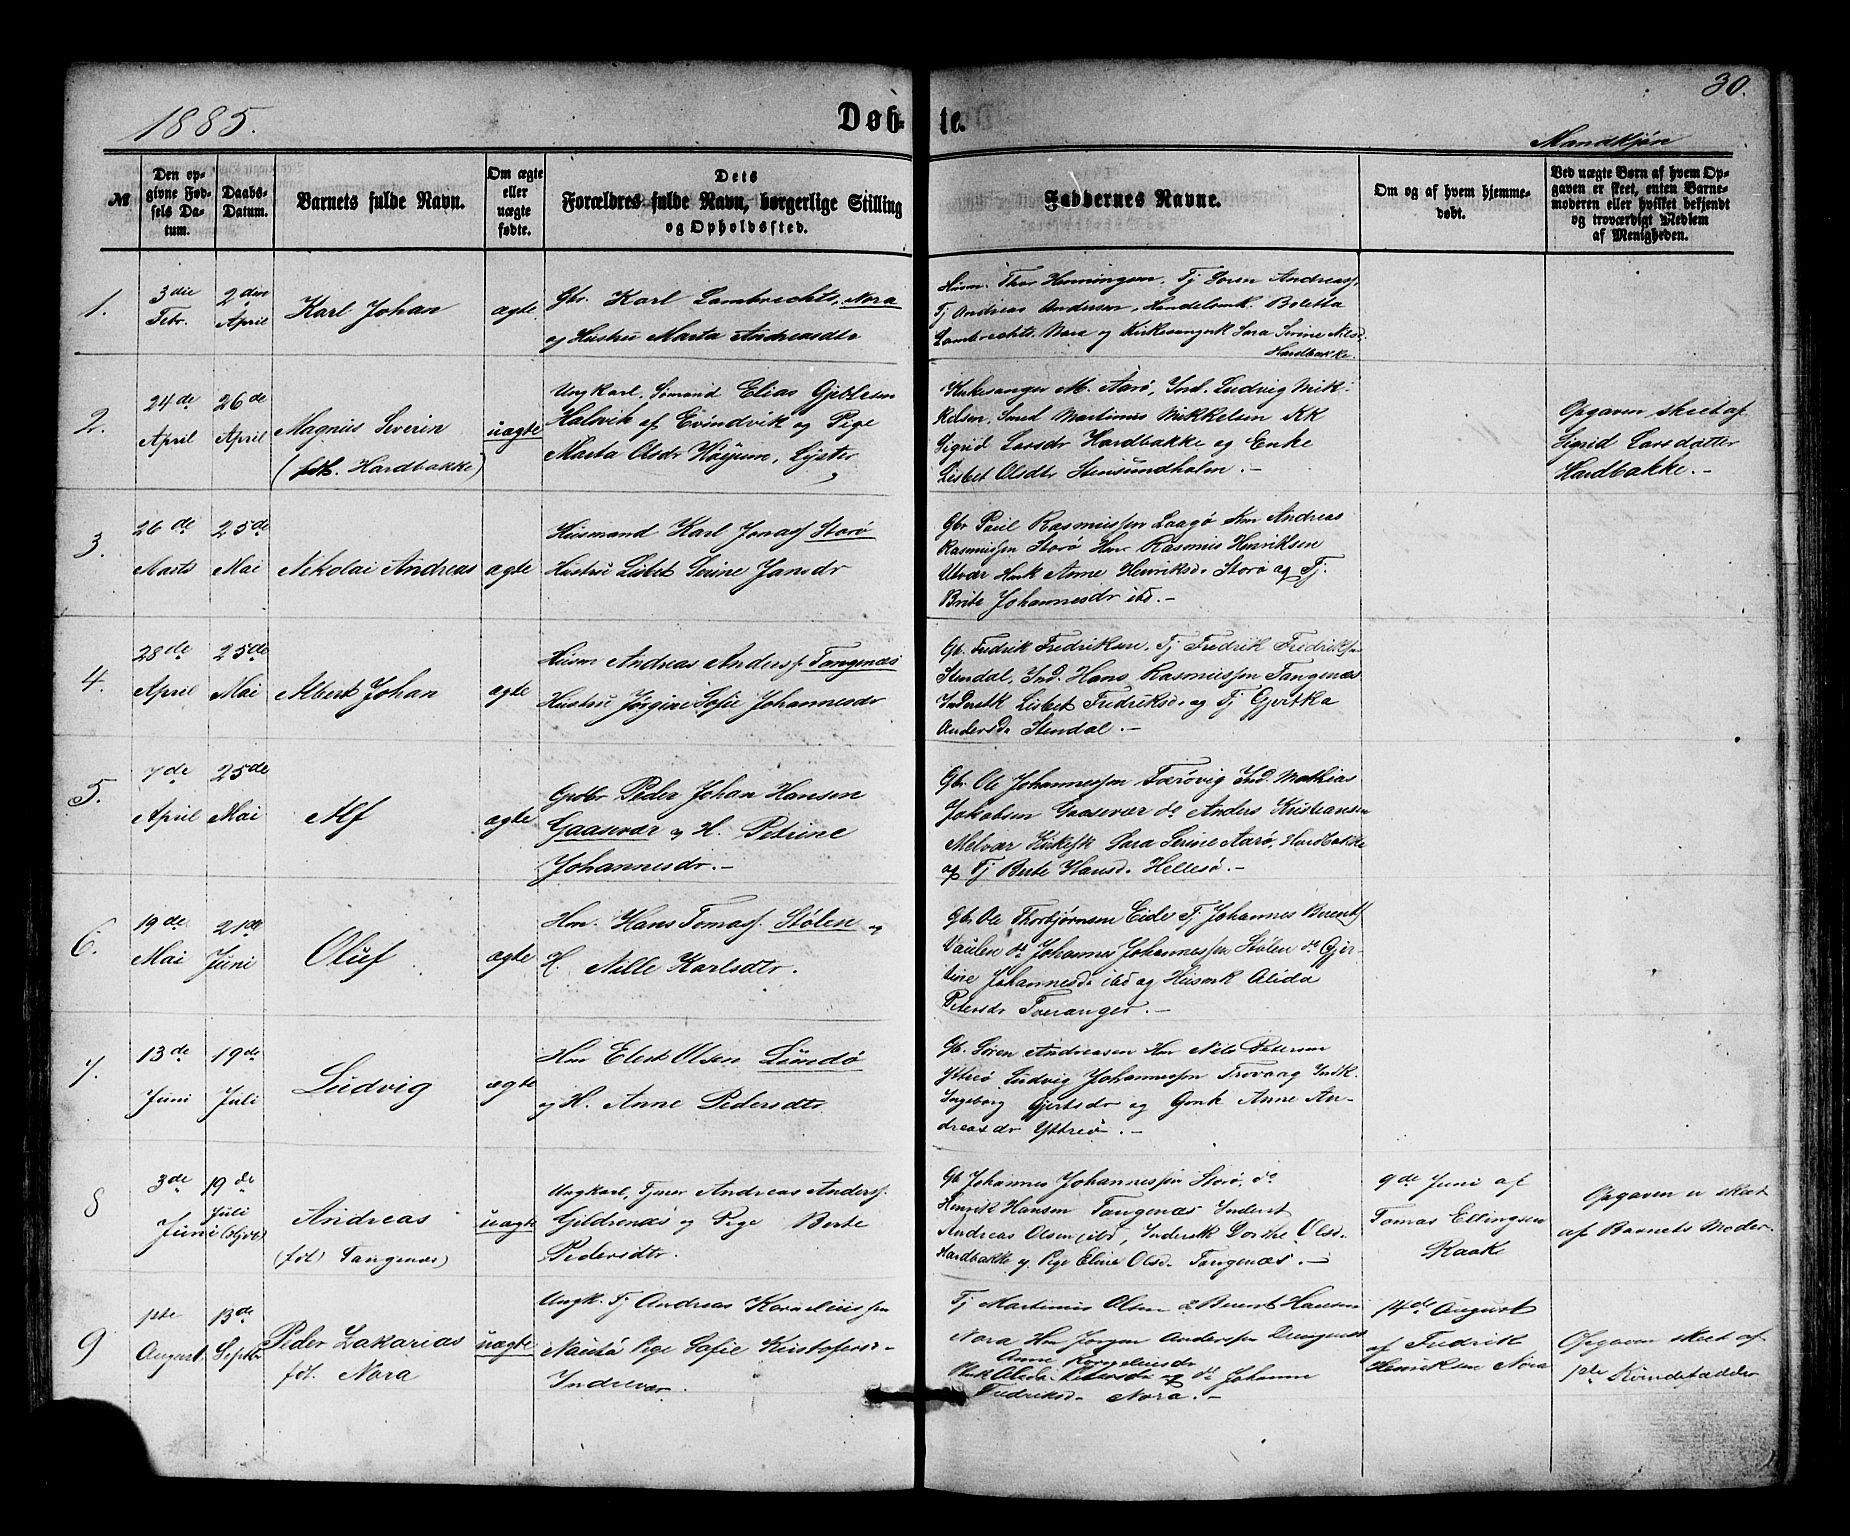 30.
1885.
Døb-
te.
Mandkjøn
№
Den op-
givne Fød-
sels Da-
tum.
Daabs-
Datum.
Barnets fulde Navn.
Om ægte
eller
uægte
fødte.
Dets
Forældres fulde Navn, borgerlige Stilling
og Opholdssted.
Faddernes Navne.
Om og af hvem hjemme-
døbt.
Ved uægte Børn af hvem Op-
gaven er skeet, enten Barne-
moderen eller hvilket bekjendt
og troværdigt Medlem
af Menigheden.
1.
3die
Febr.
2den
April
Karl Johan
ægte
Gbr. Karl Lambrechts, Nora
og Hustru Marta Andreasdtr
Husm. Thor Henningsen, Tj Søren Andreasf.
Tj Andreas Andersen, Handelsmk. Boletta
Lambrechts Nora og Kirkesangerk Sara Serine Nilsd.
Hardbakke.
2.
24de
April
26de
April
Magnus Severin
(føt. Hardbakke)
uægte
Ungkarl, Sømand Elias Gjetlesen
Halsvik af Evindvik og Pige
Marta Olsdr Høyum, Lyster
Kirkesanger M. Aarø, Ind. Ludvig Mik-
kelsen, Smed Martinus Mikkelsen KK
Sigrid Larsdr Hardbakke og Enke
Lisbet Olsdtr Stensundholm. -
Opgaven skeet af
Sigrid Larsdatter
Hardbakke. -
3.
26de
Marts
25de
Mai
Nikolai Andreas
ægte
Husmand Karl Jonasf Storø
Hustru Lisbet Serine Jansdr
Gbr Paul Rasmussen Laagø Hm Andreas
Rasmussen Storø Hm Rasmus Henriksen
Utvær Hmk Anne Henriksd. Storø og Tj.
Brite Johannesdr ibd. -
4.
28de
April
25de
Mai
Albert Johan
ægte
Husm Andreas Andersf. Tangenæs
Hustru Jørgine Sofie Johannesdr
Gb. Fredrik Fredriksen, Tj Fredrik Fredriksen
Stendal, Ind. Hans Rasmussen Tangenæs
Inderstk Lisbet Fredriksd. og Tj Gjertka
Andersd. Stendal. -
5.
7de
April
25de
Mai
Alf
ægte
Gbr Peder Johan Hansen
Gaasevær og H. Petrine
Johannesdr. -
Gb. Ole Johannessen Færøvig Ind. Mathias
Jakobsen Gaasevær do Anders Kristiansen
Melvær Kirkesk Sara Serine Aarø, Hardbakke
og Tj Berte Hansd. Hellesø. -
6.
19de
Mai
21de
Juni
Oluf
ægte
Hm. Hans Tomasf. Stølen og
H. Nille Karlsdtr.
Gb. Ole Thorbjørnsen Eide Tj Johannes Berentsf
Vaulen do Johannes Johannessen Stølen do Gjer-
tine Johannesd. ibd og Husmk Alida
Petersdr Tveranger. -
7.
13de
Juni
19de
Juli
Ludvig
ægte
Hm Elert Olsen Lundø
og H. Anne Pedersdtr
Gb. Søren Andreasen Hm Nils Petersen
Ytterø Ludvig Johannessen Trovaag Indk.
Ingeborg Gjertsdr og Gmk Anne An-
dreasdr Ytterø. -
8
3de
Juni
19de
Juli
Andreas
(føt) Tangenæs)
uægte
Ungkarl, Tjener Andreas Andersf.
Gildrenæs og Pige Berte
Pedersdtr.
Gb Johannes Johannessen Storø, do
Henrik Hansen Tangenæs Inderst
Andreas Olsen ibd, Inderstk Dorthe Olsd.
Hardbakke og Pige Eline Olsd. Tangenæs. -
9de Juni af
Tomas Ellingsen
Raake
Opgaven er skeet
af Barnets Moder.
9
1ste
August.
13de
Septbr
Peder Zakarias
føt. Nora
uægte
Ungk. Tj Andreas Korneliussen
Nautø Pige Sofie Kristofers-
Indrevær.
Tj Martinus Olsen do Berent Hansen
Nora Hm Jørgen Andersen
Anne Korneliusdr
Alida Petersdr og do Johanne
Fredriksd. Nora. -
14de August
af Fredrik
Henriksen Nora
Opgaven skeet af
1ste Kvindefadder